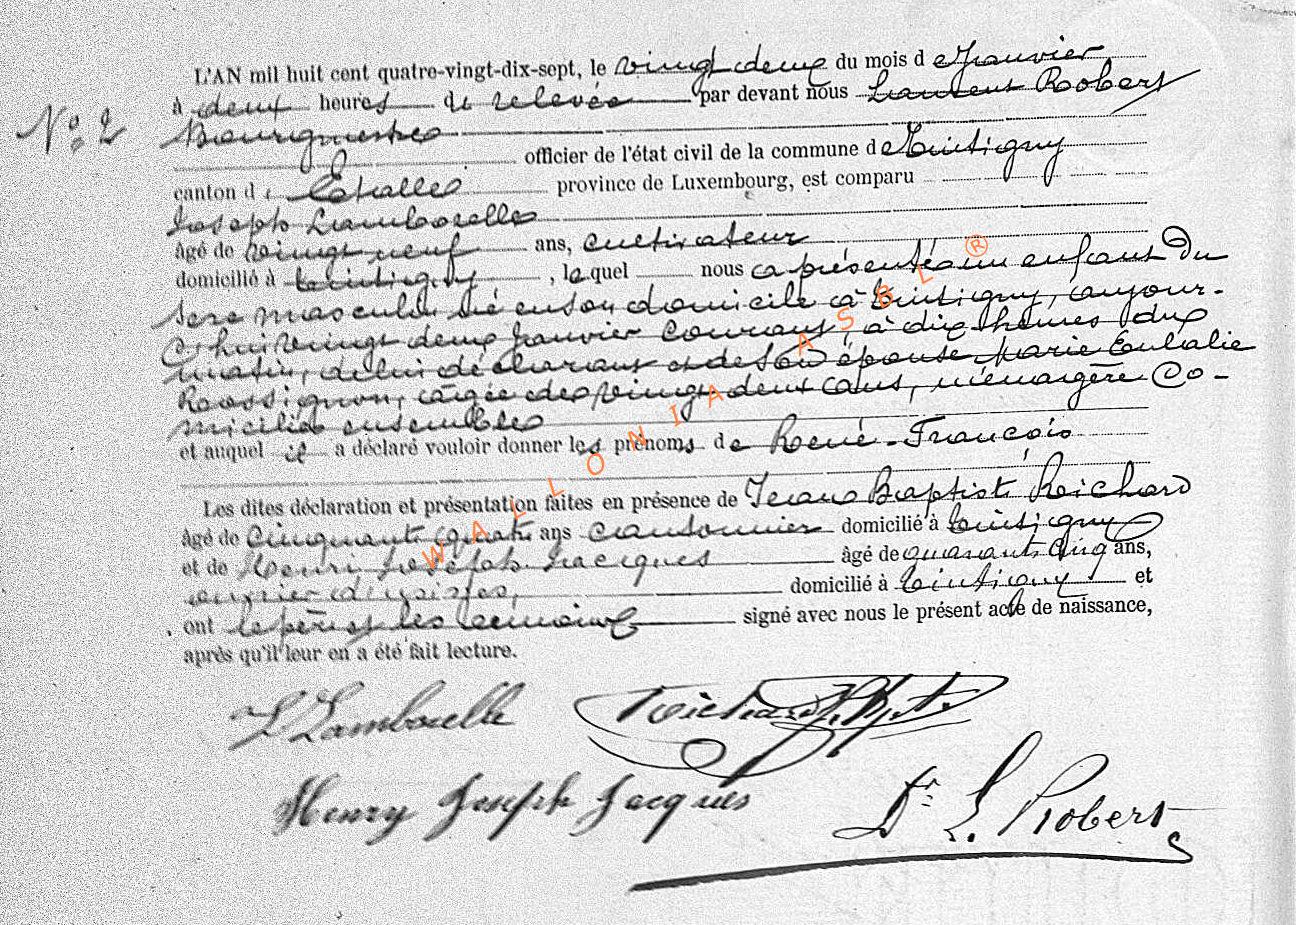 L'AN mil huit cent quatre-vingt-dix-sept, le vingt deux du mois de Janvier
N° 2
à deux heures de relevée par devant nous Laurent Robert
Bourgmestre
officier de l'état civil de la commune de Tintigny
canton d'Etalle province de Luxembourg, est comparu
Joseph Lamborelle
âgé de vingt neuf ans, cultivateur
domicilié à Tintigny, lequel nous a présenté un enfant du
sexe masculin né en son domicile à Tintigny, aujour-
d'hui vingt deux Janvier courant, à dix heures du
matin, de lui déclarant et de son épouse Marie Eulalie
Rossignon, âgée de vingt deux ans, ménagère do-
miciliés ensemble
et auquel il a déclaré vouloir donner les prénoms de René-François
Les dites déclaration et présentation faites en présence de Jean Baptiste Reichard
âgé de cinquante quatre ans cantonnier domicilié à Tintigny
et de Henri Joseph Jacques âgé de quarante cinq ans,
ouvrier domicilié à Tintigny et
ont le père et les témoins signé avec nous le présent acte de naissance,
après qu'il leur en a été fait lecture.
J Lamborelle Reichard J. Bpt.
Henry Joseph Jacques Dr. L. Robert
WALLONIA ASBL ®